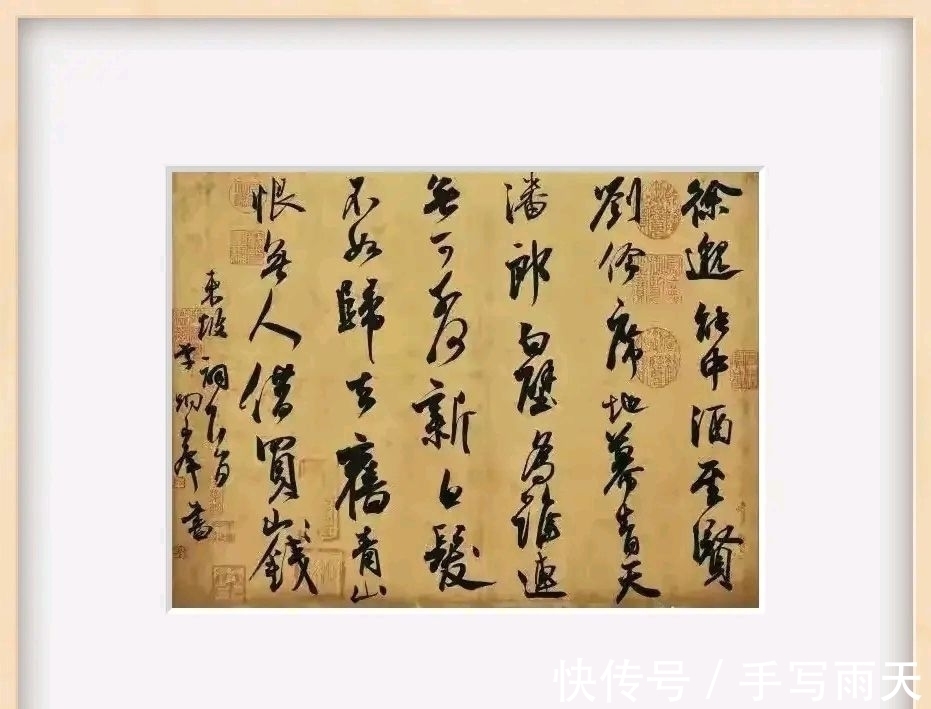 徐邈能中酒圣賢
劉伶席地幕青天
潘郎白璧為誰連
無可奈何新白髮
不如歸去舊青山
恨無人借買山錢
東坡詞
書
快传号 / 手写雨天